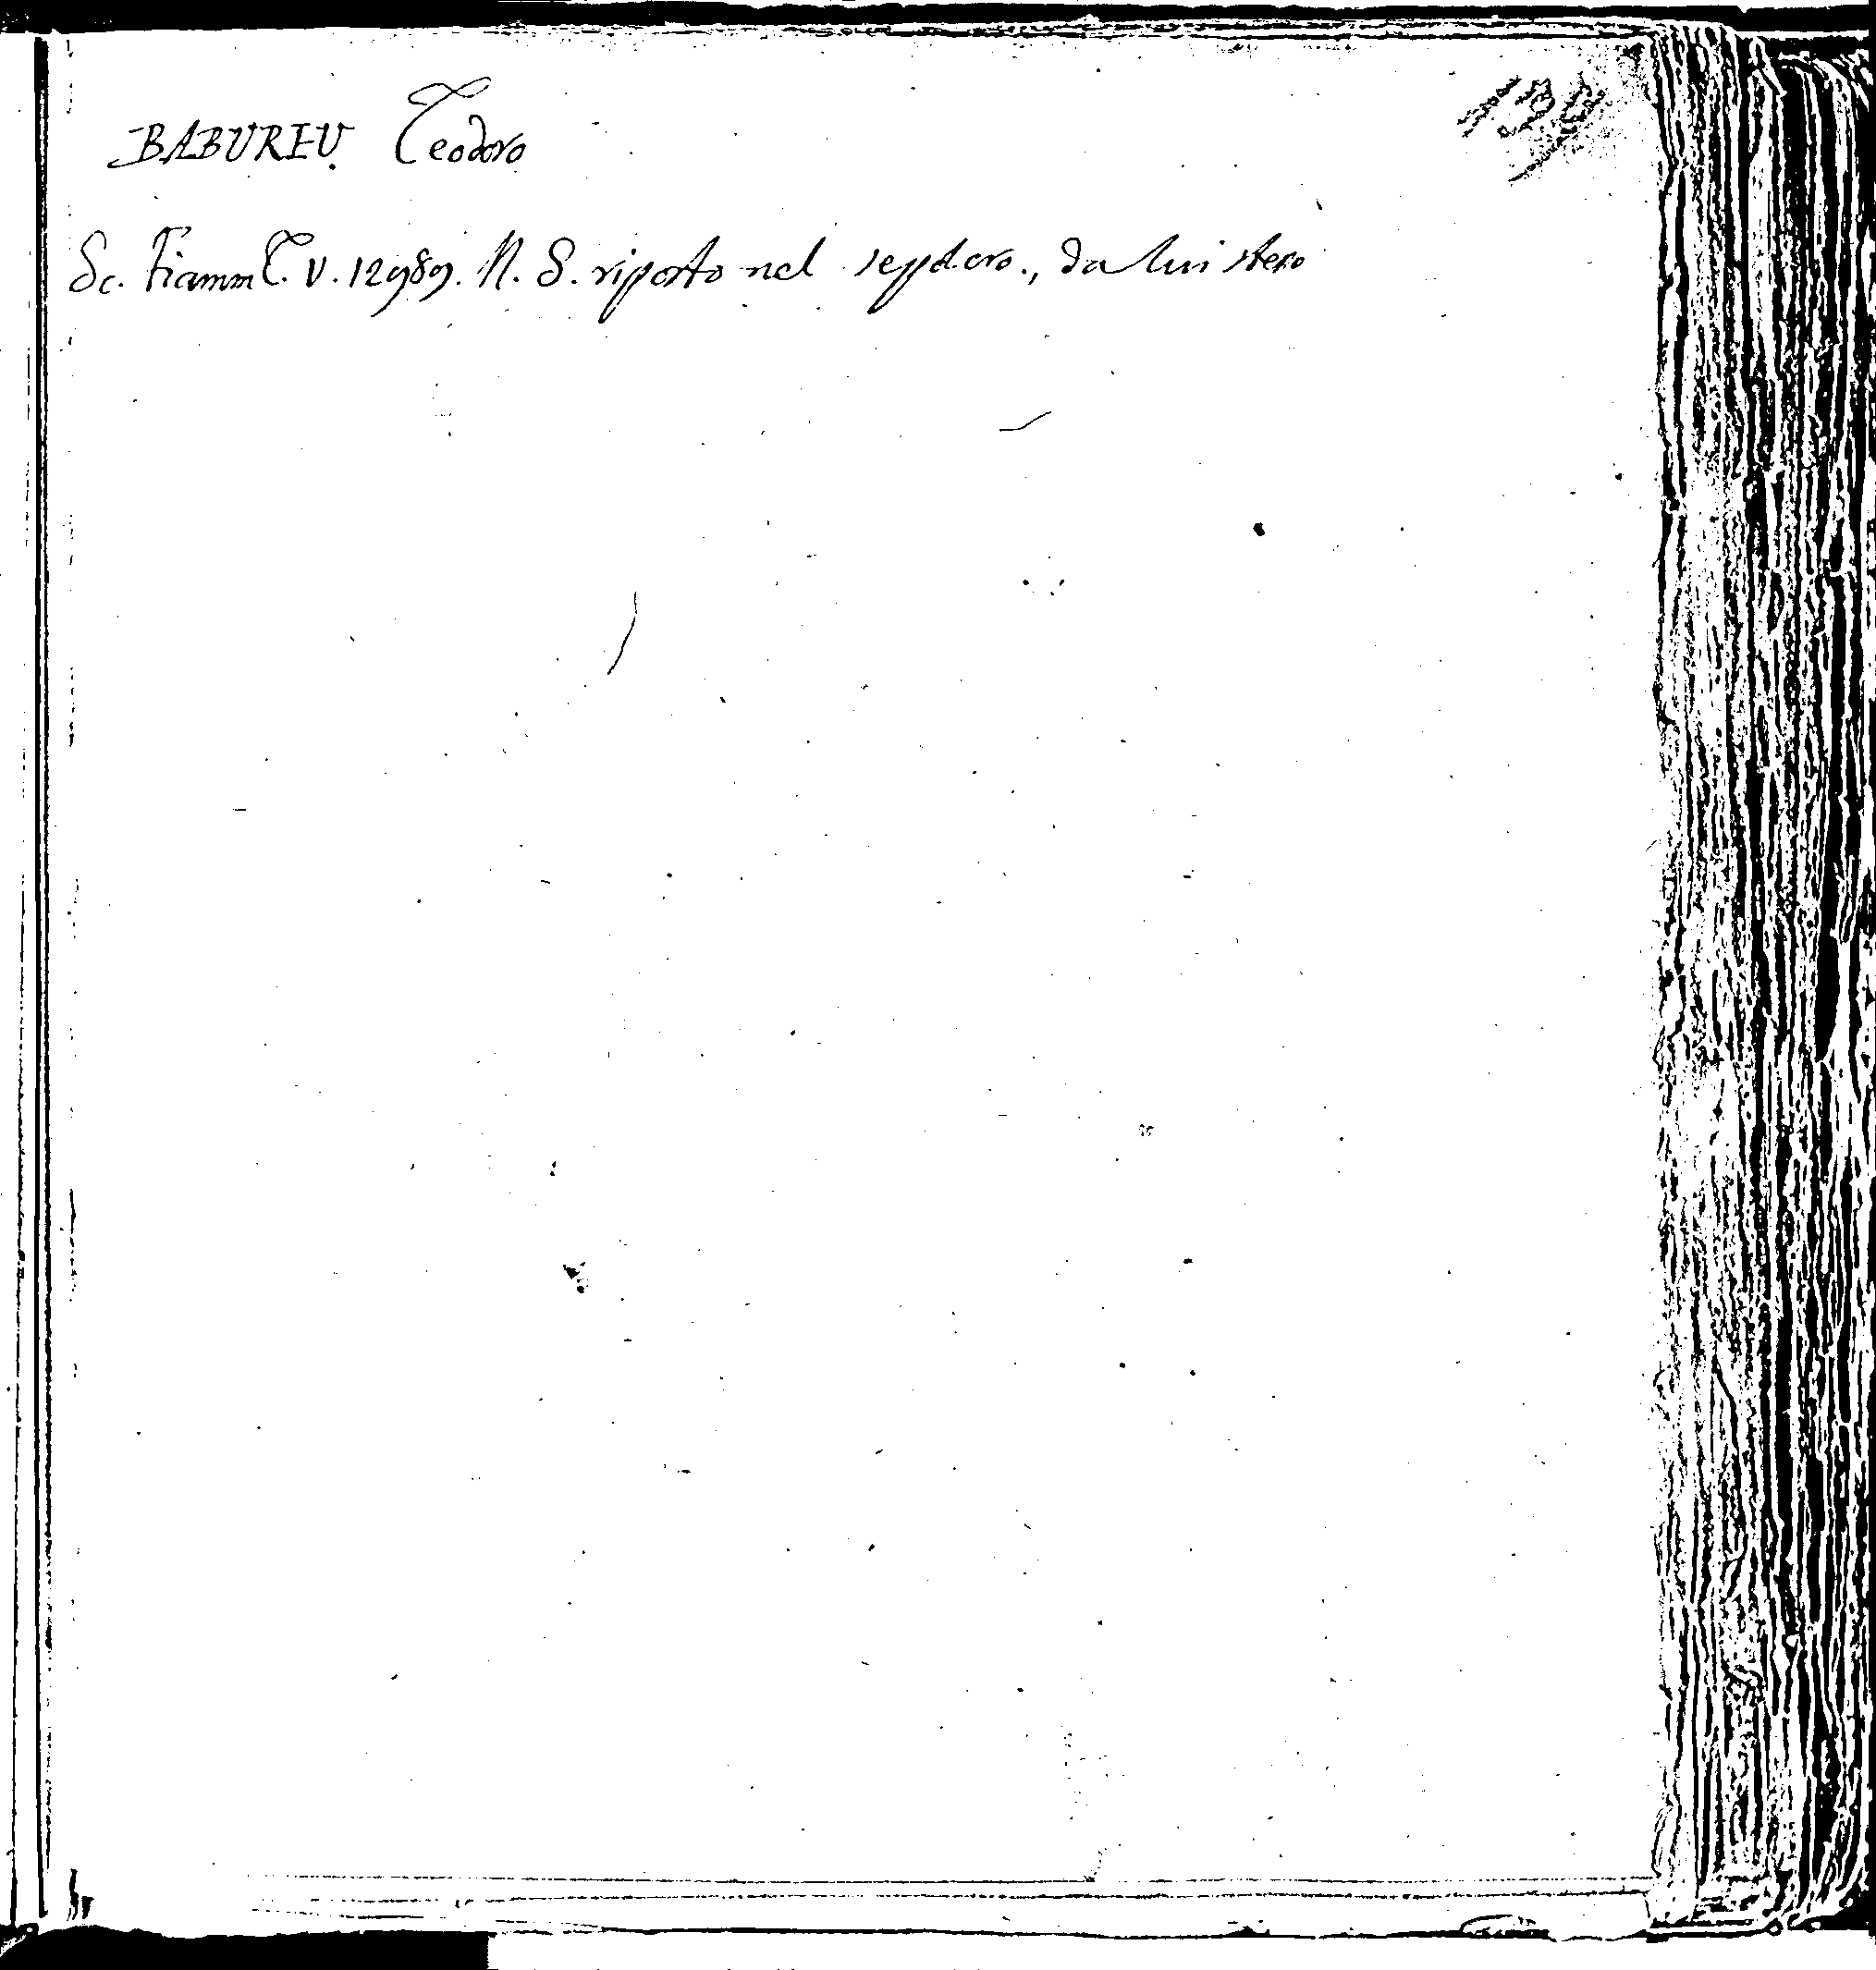 BABUREU. Teodoro
Sc. Fiamm T. V. 12989. N. S. riposto nel seppol.cro., da lui stesso